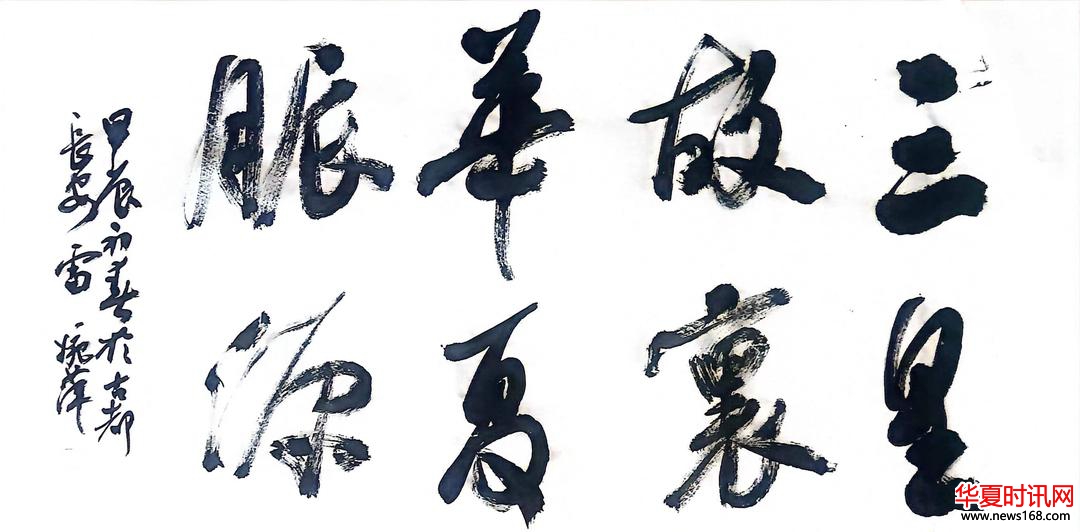 三皇
故里
華夏
脈源
甲辰初春於古都
長安 雷婉萍
华夏时讯网
www.news168.com